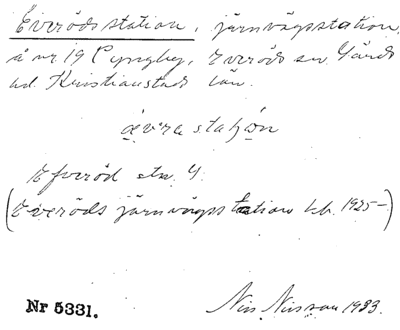 Everöds station, järnvägsstation,
å nr 19 Pyngby, Everöds sn, Gärds
hd. Kristianstads län.
ǡvra stahǫn
Efveröd stn. G.
(Everöds järnvägsstation kb. 1925-)
Nr 5331. Nils Nilsson 1933.